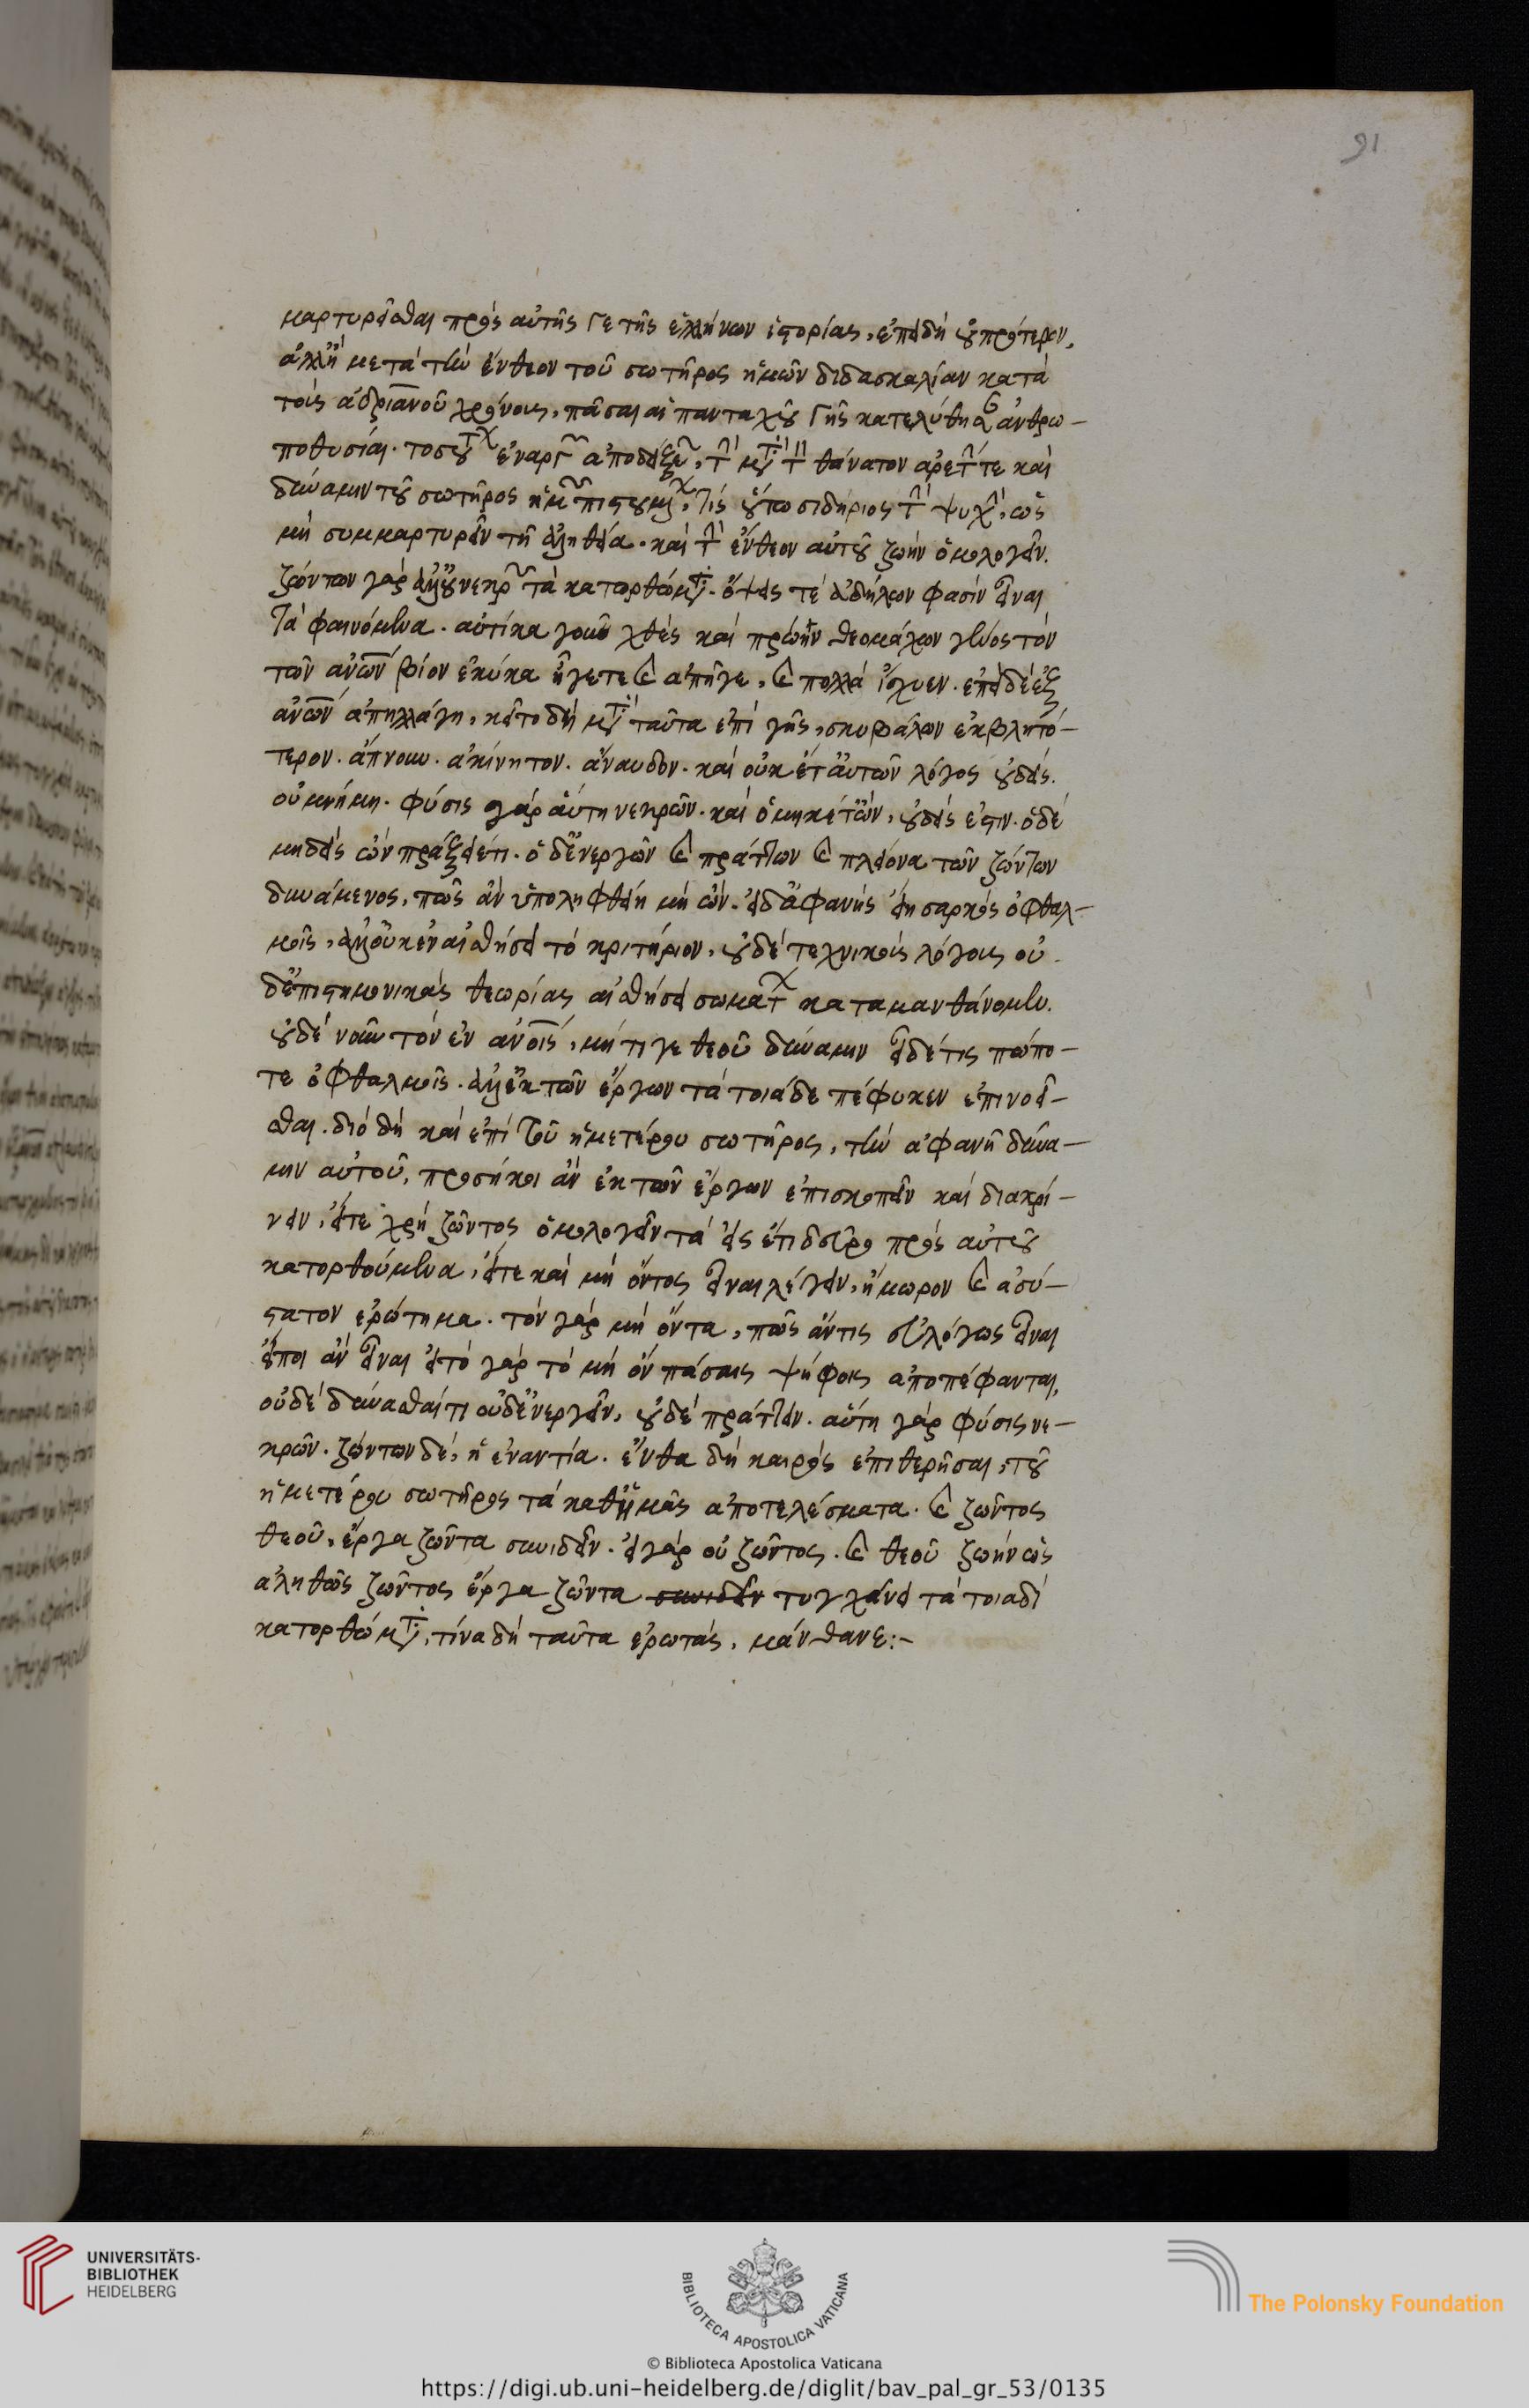 91
μαρτυρεῖσθαι πρὸς αὐτῆς γε τῆς ἑλλήνων ἱστορίας, ἐπειδὴ οὐ πρότερον,
ἀλλ' ἢ μετὰ τὴν ἔνθεον τοῦ σωτῆρος ἡμῶν διδασκαλίαν κατὰ
τοὺς ἀδριανοῦ χρόνους, πᾶσαι αἱ πανταχοῦ γῆς κατελύθησαν ἀνθρω-
ποθυσίαι. τοσούτοις ἐναργῶν ἀποδείξεων, τὴν μετὰ τὸν θάνατον ἀρετήν τε καὶ
δύναμιν τοῦ σωτῆρος ἡμῶν πιστουμένοις, τίς οὕτω σιδήριος τὴν ψυχὴν, ὡς
μὴ συμμαρτυρεῖν τῇ ἀληθεία. καὶ τὴν ἔνθεον αὐτοῦ ζωὴν ὁμολογεῖν.
ζώντων γὰρ ἀλλ' οὐ νεκρῶν τὰ κατορθώματα. ὄψεις τὲ ἀδήλων φασὶν εἶναι
τὰ φαινόμενα. αὐτίκα γοῦν χθὲς καὶ πρώην θεομάχων γένος τὸν
τῶν ἀνων βίον ἐκύκα ἦγέ τε καὶ ἀπῆγε, καὶ πολλὰ ἴσχυεν. ἐπεὶ δὲ ἐξ
ἀνων ἀπηλλάγη, κεῖτο δὴ μετὰ ταῦτα ἐπὶ γῆς, σκυβάλων ἐκβλητό-
τερον. ἄπνουν. ἀκίνητον. ἄναυδον. καὶ οὐκέτ' αὐτῶν λόγος οὐδεὶς.
οὐ μνήμη. φύσις γὰρ αὕτη νεκρῶν. καὶ ὁ μηκέτ' ὢν, οὐδείς ἐστιν. ὁ δὲ
μηδεὶς ὢν πράξει ἔτι. ὁ δ' ἐνεργῶν καὶ πράττων καὶ πλείονα τῶν ζώντων
δυνάμενος, πῶς ἂν ὑποληφθείη μὴ ὢν. εἰ δ' ἀφανὴς εἴη σαρκὸς ὀφθαλ-
μοῖς, ἀλλ' οὐκ ἐν αἰσθήσει τὸ κριτήριον, οὐδὲ τεχνικοὺς λόγους οὐ
δ' ἐπιστημονικὰς θεωρίας αἰσθήσει σωματικῇ καταμανθάνομεν.
οὐδὲ νοῦν τὸν ἐν ἀνοις, μήτι γε θεοῦ δύναμιν εἶδέ τις πώπο-
τε ὀφθαλμοῖς. ἀλλ' ἐκ τῶν ἔργων τὰ τοιάδε πέφυκεν ἐπινοεῖ-
σθαι. διὸ δὴ καὶ ἐπὶ τοῦ ἡμετέρου σωτῆρος, τὴν ἀφανῆ δύνα-
μιν αὐτοῦ, προσήκοι ἂν ἐκ τῶν ἔργων ἐπισκοπεῖν καὶ διακρί-
νειν, εἴτε χρὴ ζῶντος ὁμολογεῖν τὰ εἰς ἔτι δεῦρο πρὸς αὐτοῦ
κατορθούμενα, εἴτε καὶ μὴ ὄντος εἶναι λέγειν, ἢ μωρὸν καὶ ἀσύ-
στατον ἐρώτημα. τὸν γὰρ μὴ ὄντα, πῶς ἄν τις εὐλόγως εἶναι
εἴποι ἂν εἶναι εἰ τὸ γὰρ τὸ μὴ ὂν πάσαις ψήφοις ἀποπέφανται,
οὐδὲ δύνασθαί τι οὐδ' ἐνεργεῖν, οὐδὲ πράττειν. αὕτη γὰρ φύσις νε-
κρῶν. ζώντων δὲ, ἡ ἐναντία. ἔνθα δὴ καιρὸς ἐπιθερῆσαι, τοῦ
ἡμετέρου σωτῆρος τὰ καθ' ἡμᾶς ἀποτελέσματα. καὶ ζῶντος
θεοῦ, ἔργα ζῶντα συνιδεῖν. εἰ γὰρ οὐ ζῶντος. καὶ θεοῦ ζωὴν ὡς
ἀληθῶς ζῶντος ἔργα ζῶντα συνιδεῖν τυγχάνει τὰ τοιαδὶ
κατορθώματα, τίνα δὴ ταῦτα ἐρωτᾶς, μάνθανε:-
UNIVERSITÄTS-
BIBLIOTHEK
HEIDELBERG
BIBLIOTECA APOSTOLICA VATICANA
© Biblioteca Apostolica Vaticana
The Polonsky Foundation
https://digi.ub.uni-heidelberg.de/diglit/bav_pal_gr_53/0135